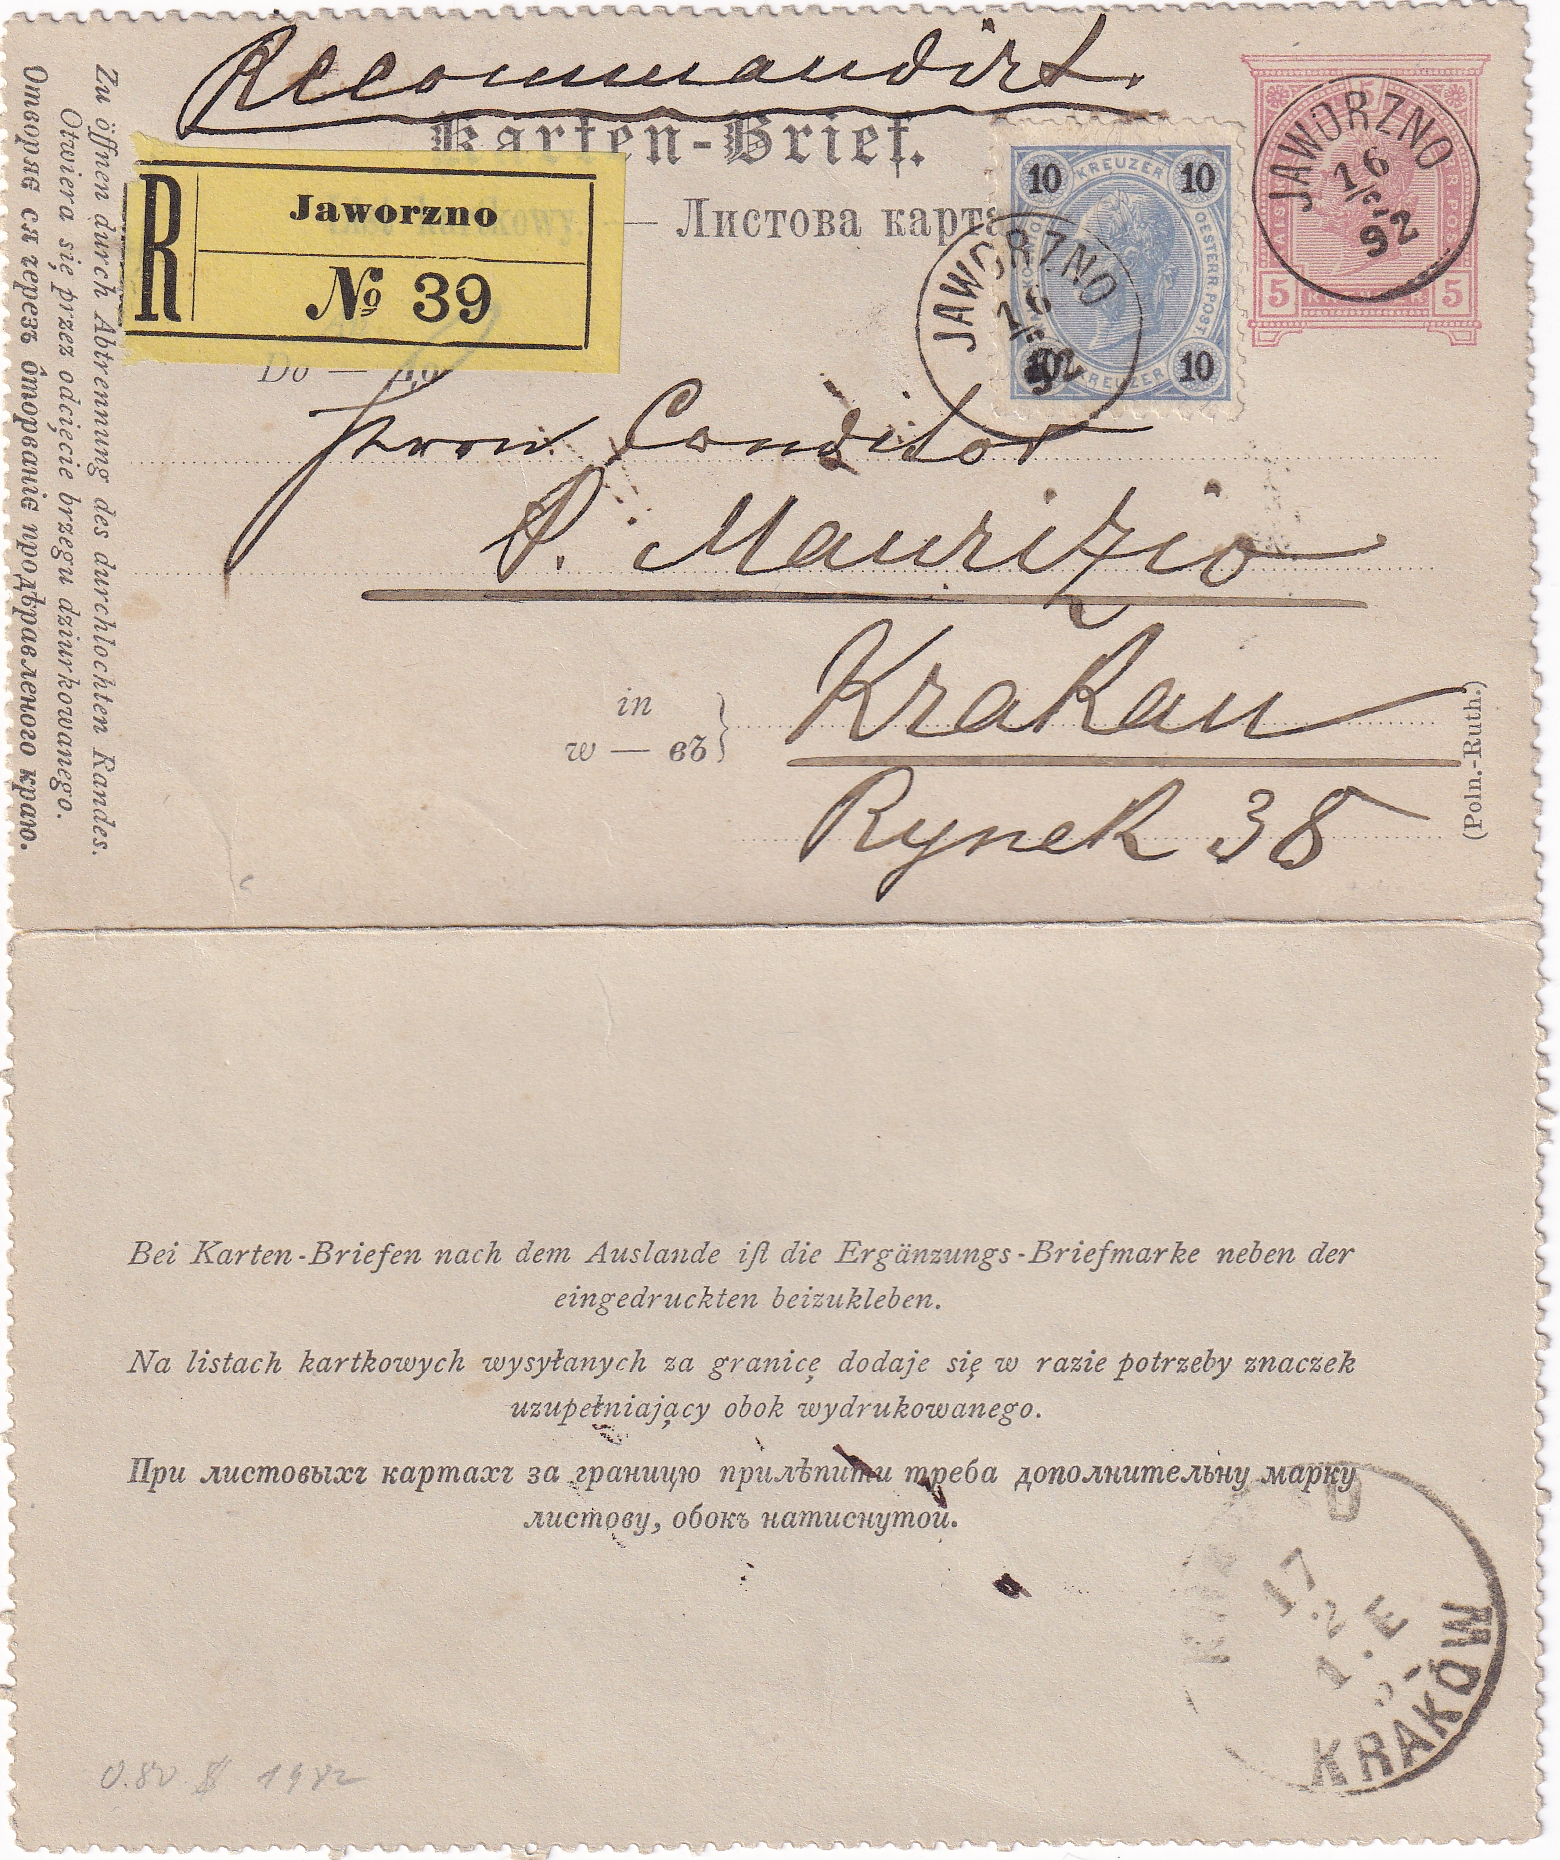 Recommandirt.
Karten-Brief.
— Листова карта
R
Jaworzno
№ 39
Do — До
Herrn Conditor
P. Maurizio
in
w — въ
Krakau
Rynek 38
(Poln.-Ruth.)
10 KREUZER 10
OESTERR. POST.
10 KREUZER 10
5 KREUZER 5
JAWORZNO
16
92
JAWORZNO
16
92
Zu öffnen durch Abtrennung des durchlochten Randes.
Otwiera się przez odcięcie brzegu dziurkowanego.
Отворяє ся черезъ оторванiє продѣравленого краю.
Bei Karten-Briefen nach dem Auslande ist die Ergänzungs-Briefmarke neben der
eingedruckten beizukleben.
Na listach kartkowych wysyłanych za granicę dodaje się w razie potrzeby znaczek
uzupełniający obok wydrukowanego.
При листовыхъ картахъ за границю прилѣпити треба дополнительну марку
листову, обокъ натиснутои.
17
2
1.E
KRAKÓW
0.80 $ 1982